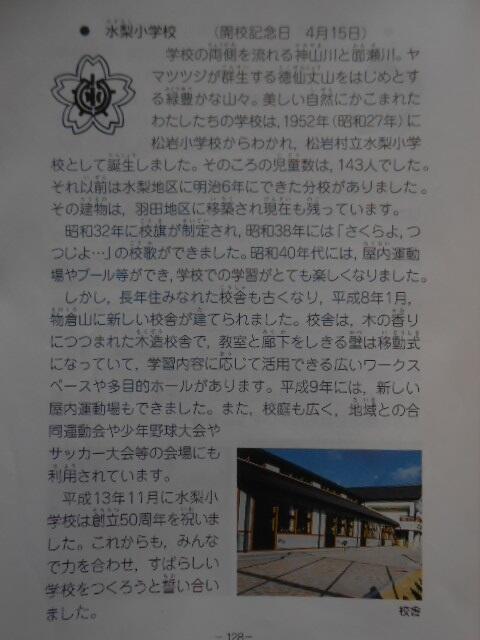 ● 水梨小学校　（開校記念日　4月15日）
学校の両側を流れる神山川と面瀬川。ヤ
マツツジが群生する徳仙丈山をはじめとす
る緑豊かな山々。美しい自然にかこまれた
わたしたちの学校は，1952年（昭和27年）に
松岩小学校からわかれ，松岩村立水梨小学
校として誕生しました。そのころの児童数は，143人でした。
それ以前は水梨地区に明治6年にできた分校がありました。
その建物は，羽田地区に移築され現在も残っています。
昭和32年に校旗が制定され，昭和38年には「さくらよ，つ
つじよ…」の校歌ができました。昭和40年代には，屋内運動
場やプール等ができ，学校での学習がとても楽しくなりました。
しかし，長年住みなれた校舎も古くなり，平成8年1月，
物倉山に新しい校舎が建てられました。校舎は，木の香り
につつまれた木造校舎で，教室と廊下をしきる壁は移動式
になっていて，学習内容に応じて活用できる広いワークス
ペースや多目的ホールがあります。平成9年には，新しい
屋内運動場もできました。また，校庭も広く，地域との合
同運動会や少年野球大会や
サッカー大会等の会場にも
利用されています。
平成13年11月に水梨小
学校は創立50周年を祝いま
した。これからも，みんな
で力を合わせ，すばらしい
学校をつくろうと誓い合い
ました。
校舎
－128－